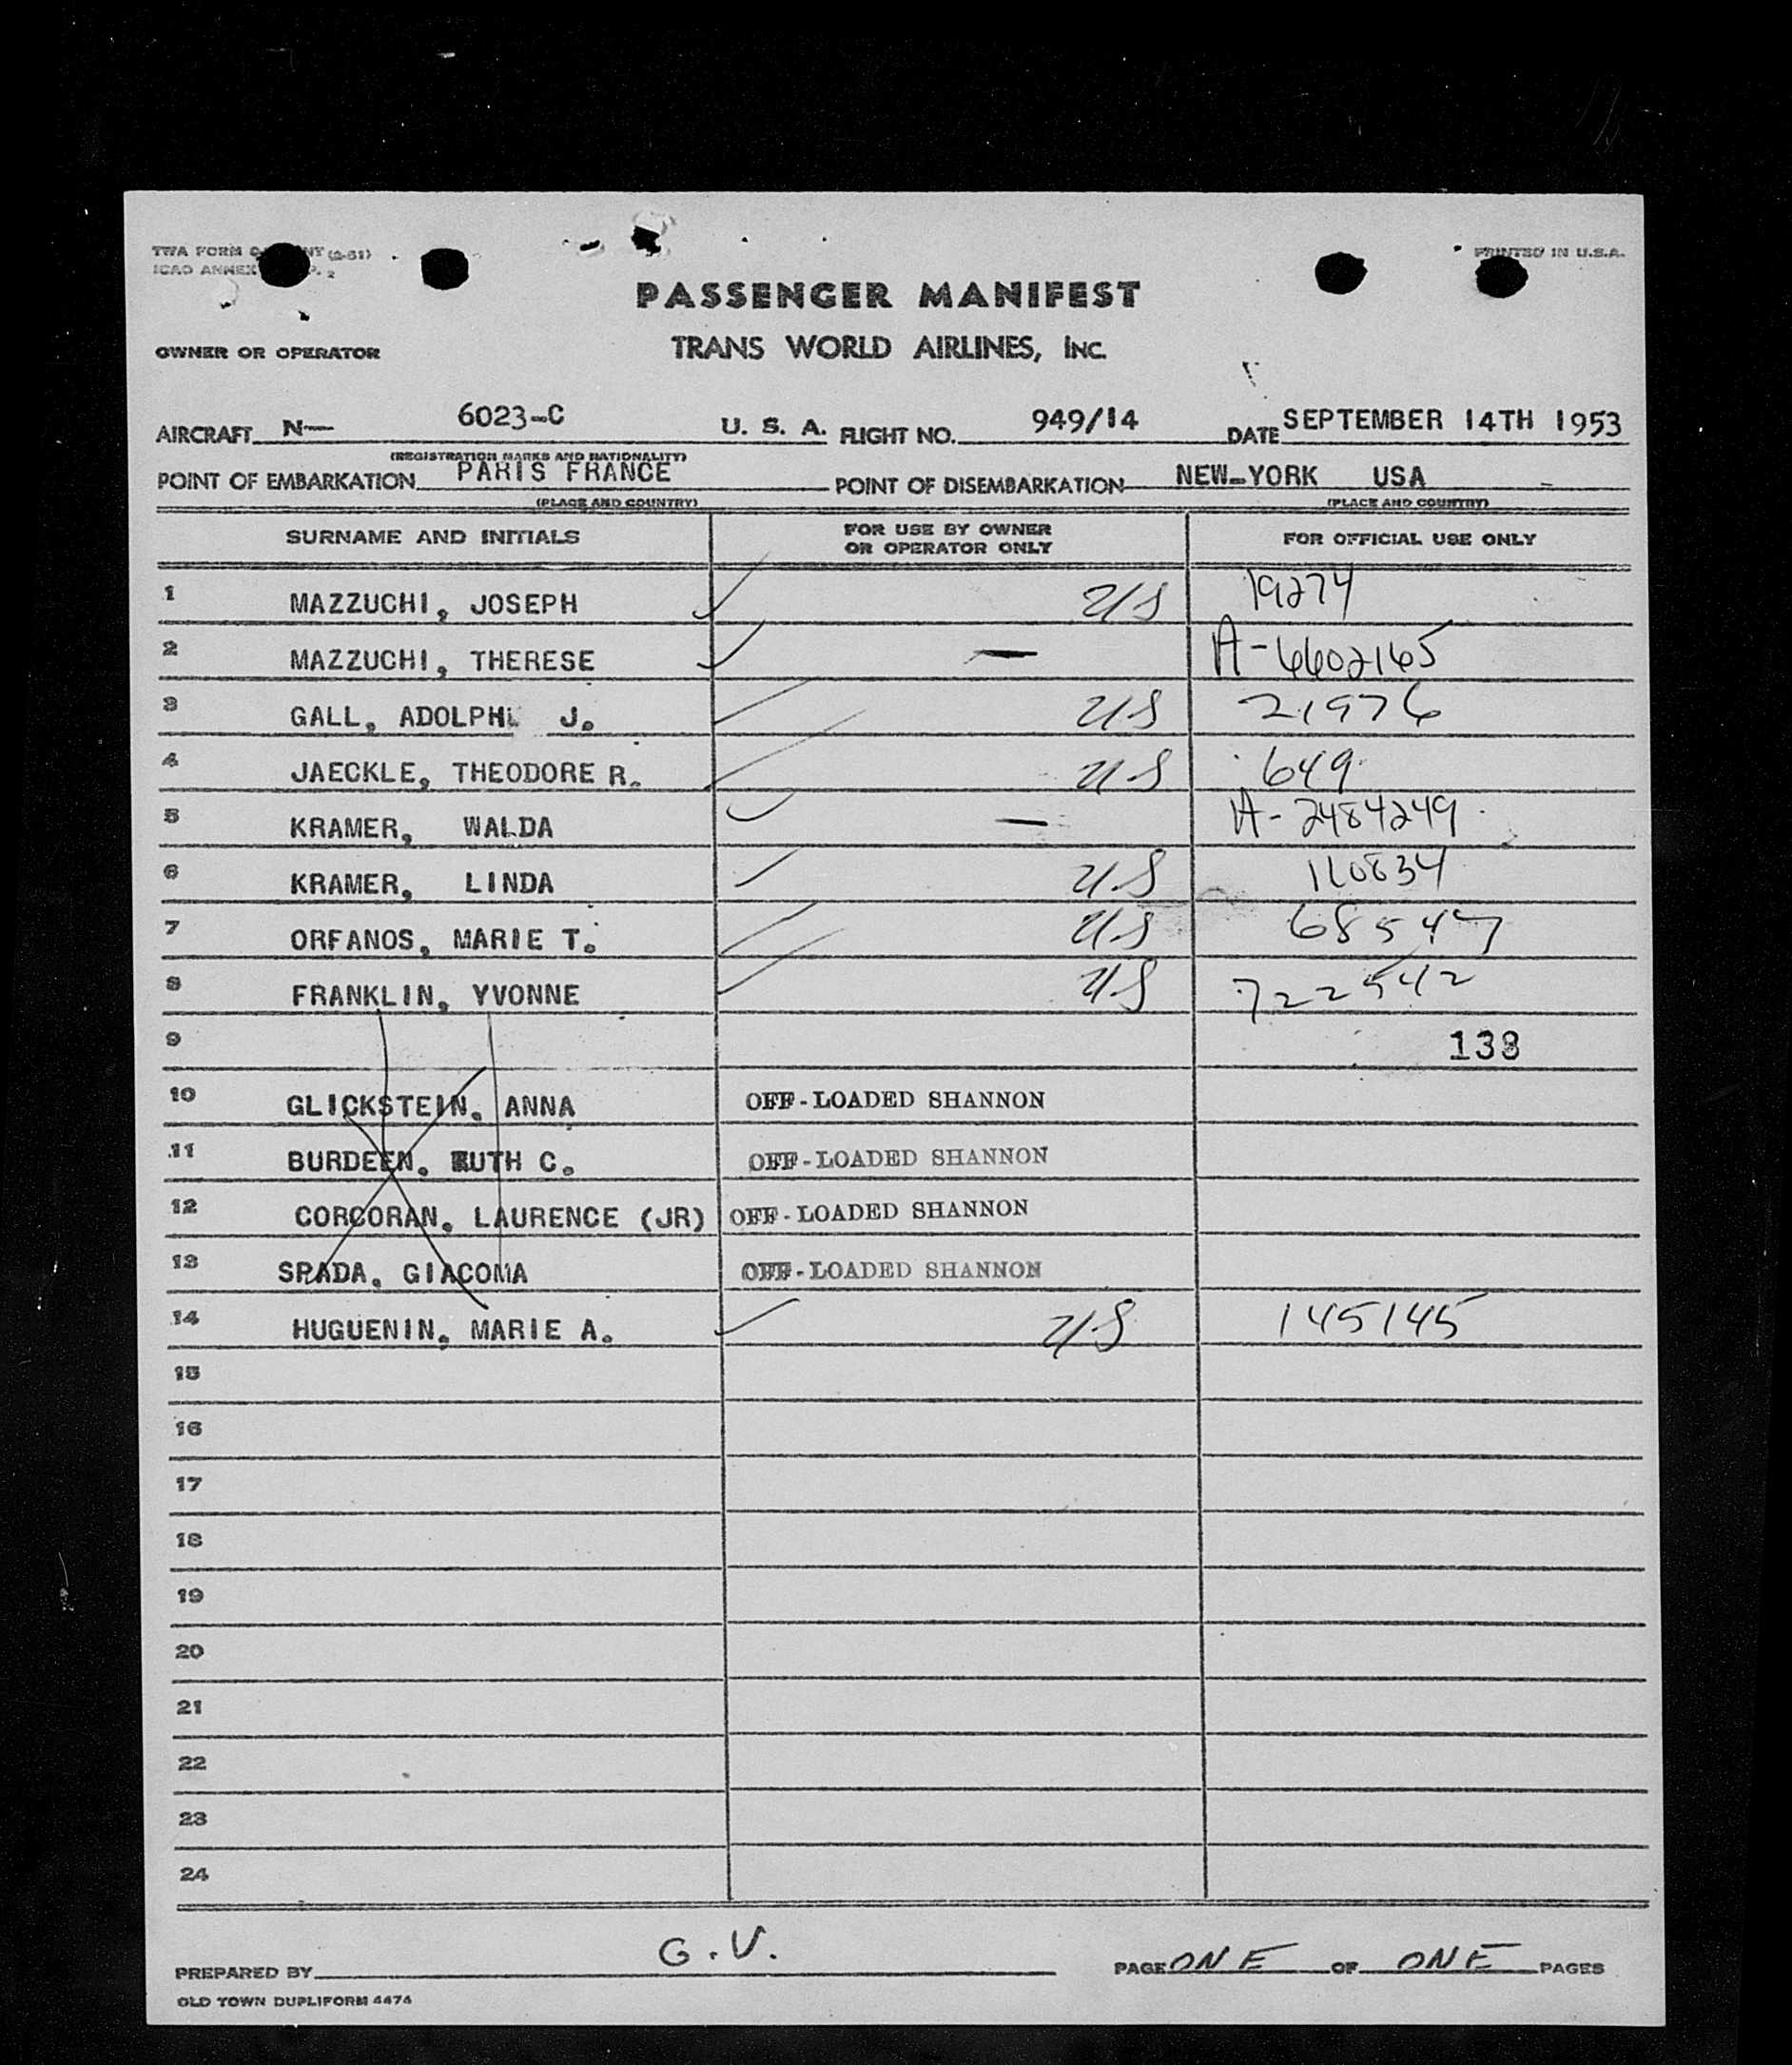 TWA FORM
PRINTED IN U.S.A.
ICAO ANNEX
PASSENGER MANIFEST
OWNER OR OPERATOR TRANS WORLD AIRLINES, INC.
AIRCRAFT N— 6023-C U. S. A. FLIGHT NO. 949/14 DATE SEPTEMBER 14TH 1953
(REGISTRATION MARKS AND NATIONALITY)
POINT OF EMBARKATION PARIS FRANCE POINT OF DISEMBARKATION NEW-YORK USA
(PLACE AND COUNTRY) (PLACE AND COUNTRY)
SURNAME AND INITIALS FOR USE BY OWNER OR OPERATOR ONLY FOR OFFICIAL USE ONLY
1 MAZZUCHI, JOSEPH US 19274
2 MAZZUCHI, THERESE — A-6602165
3 GALL, ADOLPH J. US 21976
4 JAECKLE, THEODORE R. US 649
5 KRAMER, WALDA — A-2484249
6 KRAMER, LINDA US 110834
7 ORFANOS, MARIE T. US 68547
8 FRANKLIN, YVONNE US 722542
9 138
10 GLICKSTEIN, ANNA OFF-LOADED SHANNON
11 BURDEEN, RUTH C. OFF-LOADED SHANNON
12 CORCORAN, LAURENCE (JR) OFF-LOADED SHANNON
13 SPADA, GIACOMA OFF-LOADED SHANNON
14 HUGUENIN, MARIE A. US 145145
15
16
17
18
19
20
21
22
23
24
PREPARED BY G.V. PAGE ONE OF ONE PAGES
OLD TOWN DUPLIFORM 4474